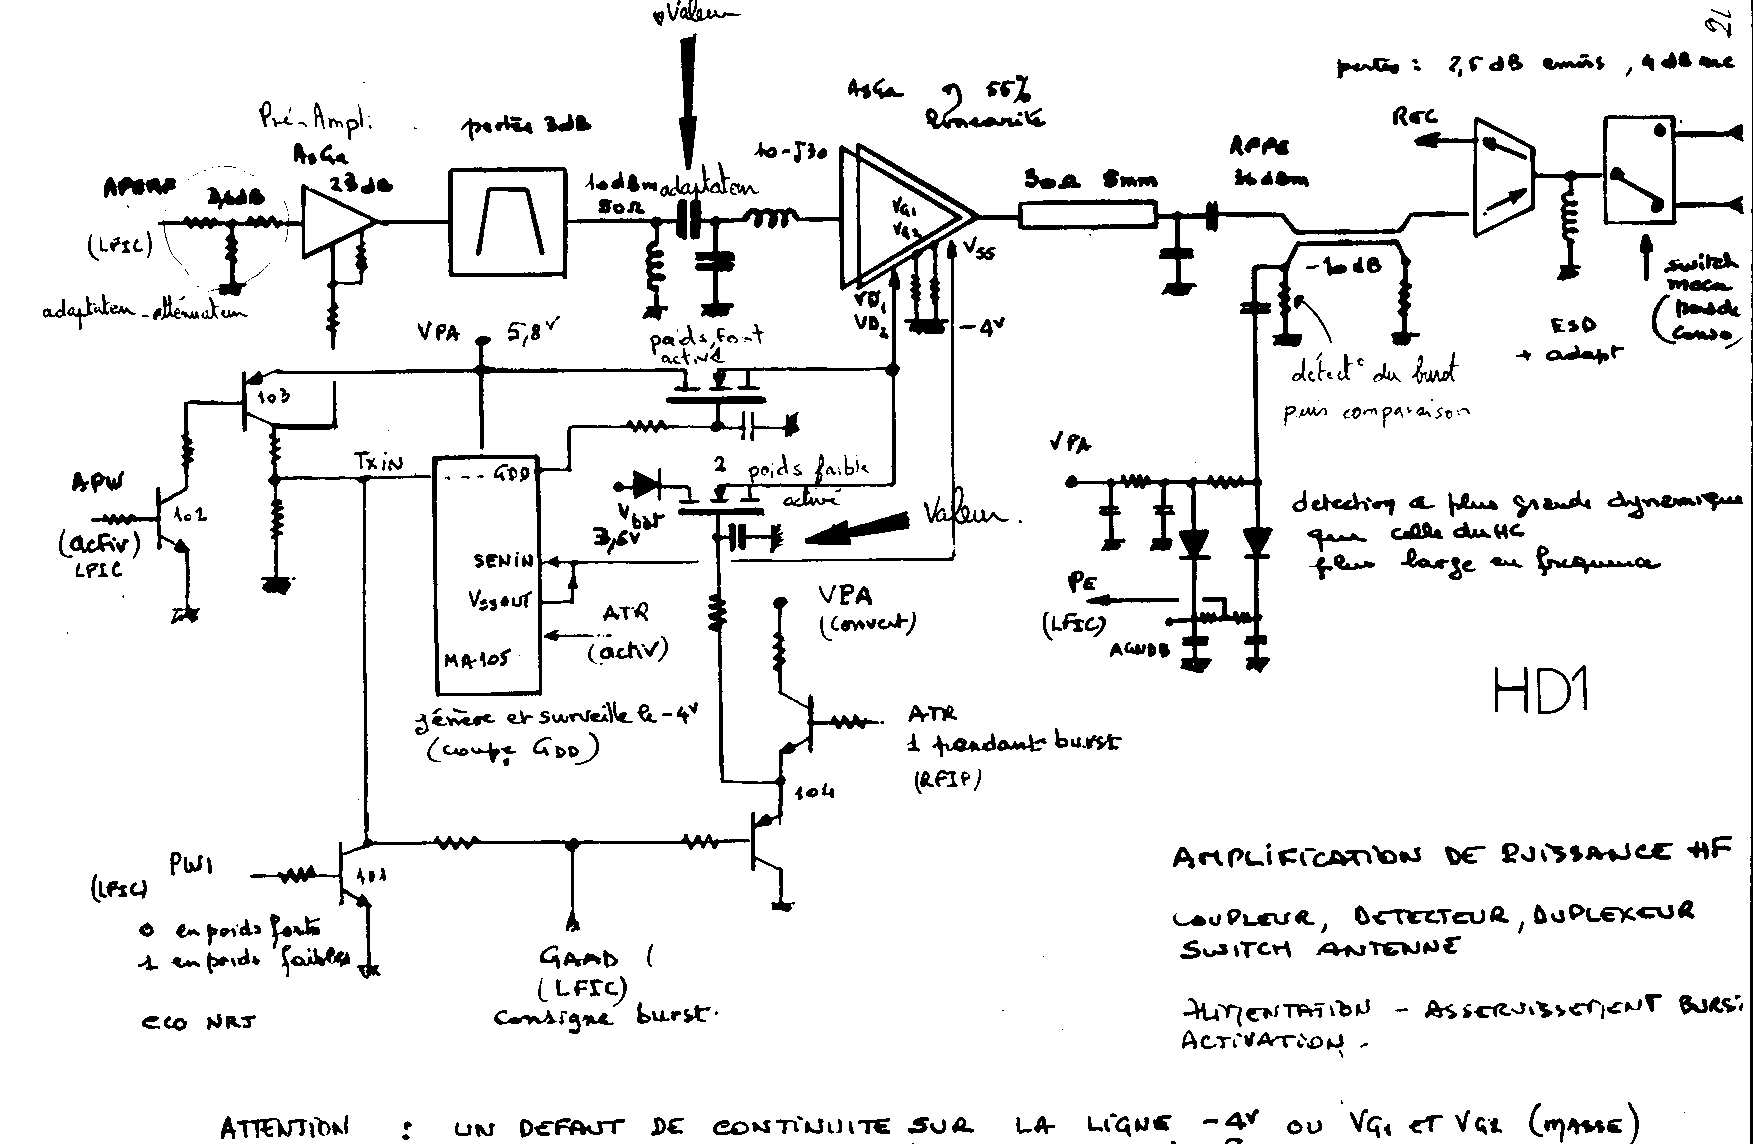 Valeur
21
pertes : 2,5 dB emiss , 4 dB rec
Pré-Ampl.
AsGa
23 dB
pertes 3dB
AsGa η 55%
linearité
REC
10-J30
APPE
36 dBm
30Ω 8mm
10dBm
50Ω
adaptateur
(LFIC)
adaptateur-atténuateur
VG1
VG2
VSS
VD1
VD2
-4V
-10 dB
ESD
+ adapt
switch
meca
VPA 5,8V
poids fort
activé
détect° du burst
puis comparaison
103
APW
(actiV)
LFIC
102
TxiN
GDD
Vbat
3,6V
2
poids faible
activé
Valeur.
VPA
detection a plus grande dynamique
que celle du HC
plus large en frequence
SENiN
VSSOUT
MA-105
ATR
(activ)
VPA
(convert)
PE
(LFIC)
AGNDB
HD1
génère et surveille le -4V
(coupe GDD)
ATR
1 pendant burst
(RFIP)
104
PW1
(LFIC)
101
0 en poids forts
1 en poids faibles
ECO NRJ
GAAD (
(LFIC)
consigne burst.
AMPLIFICATION DE PUISSANCE HF
COUPLEUR, DETECTEUR, DUPLEXEUR
SWITCH ANTENNE
ALIMENTATION - ASSERVISSEMENT BURS
ACTIVATION -
ATTENTION : UN DEFAUT DE CONTINUITE SUR LA LIGNE -4V OU VG1 ET VG2 (MASSE)